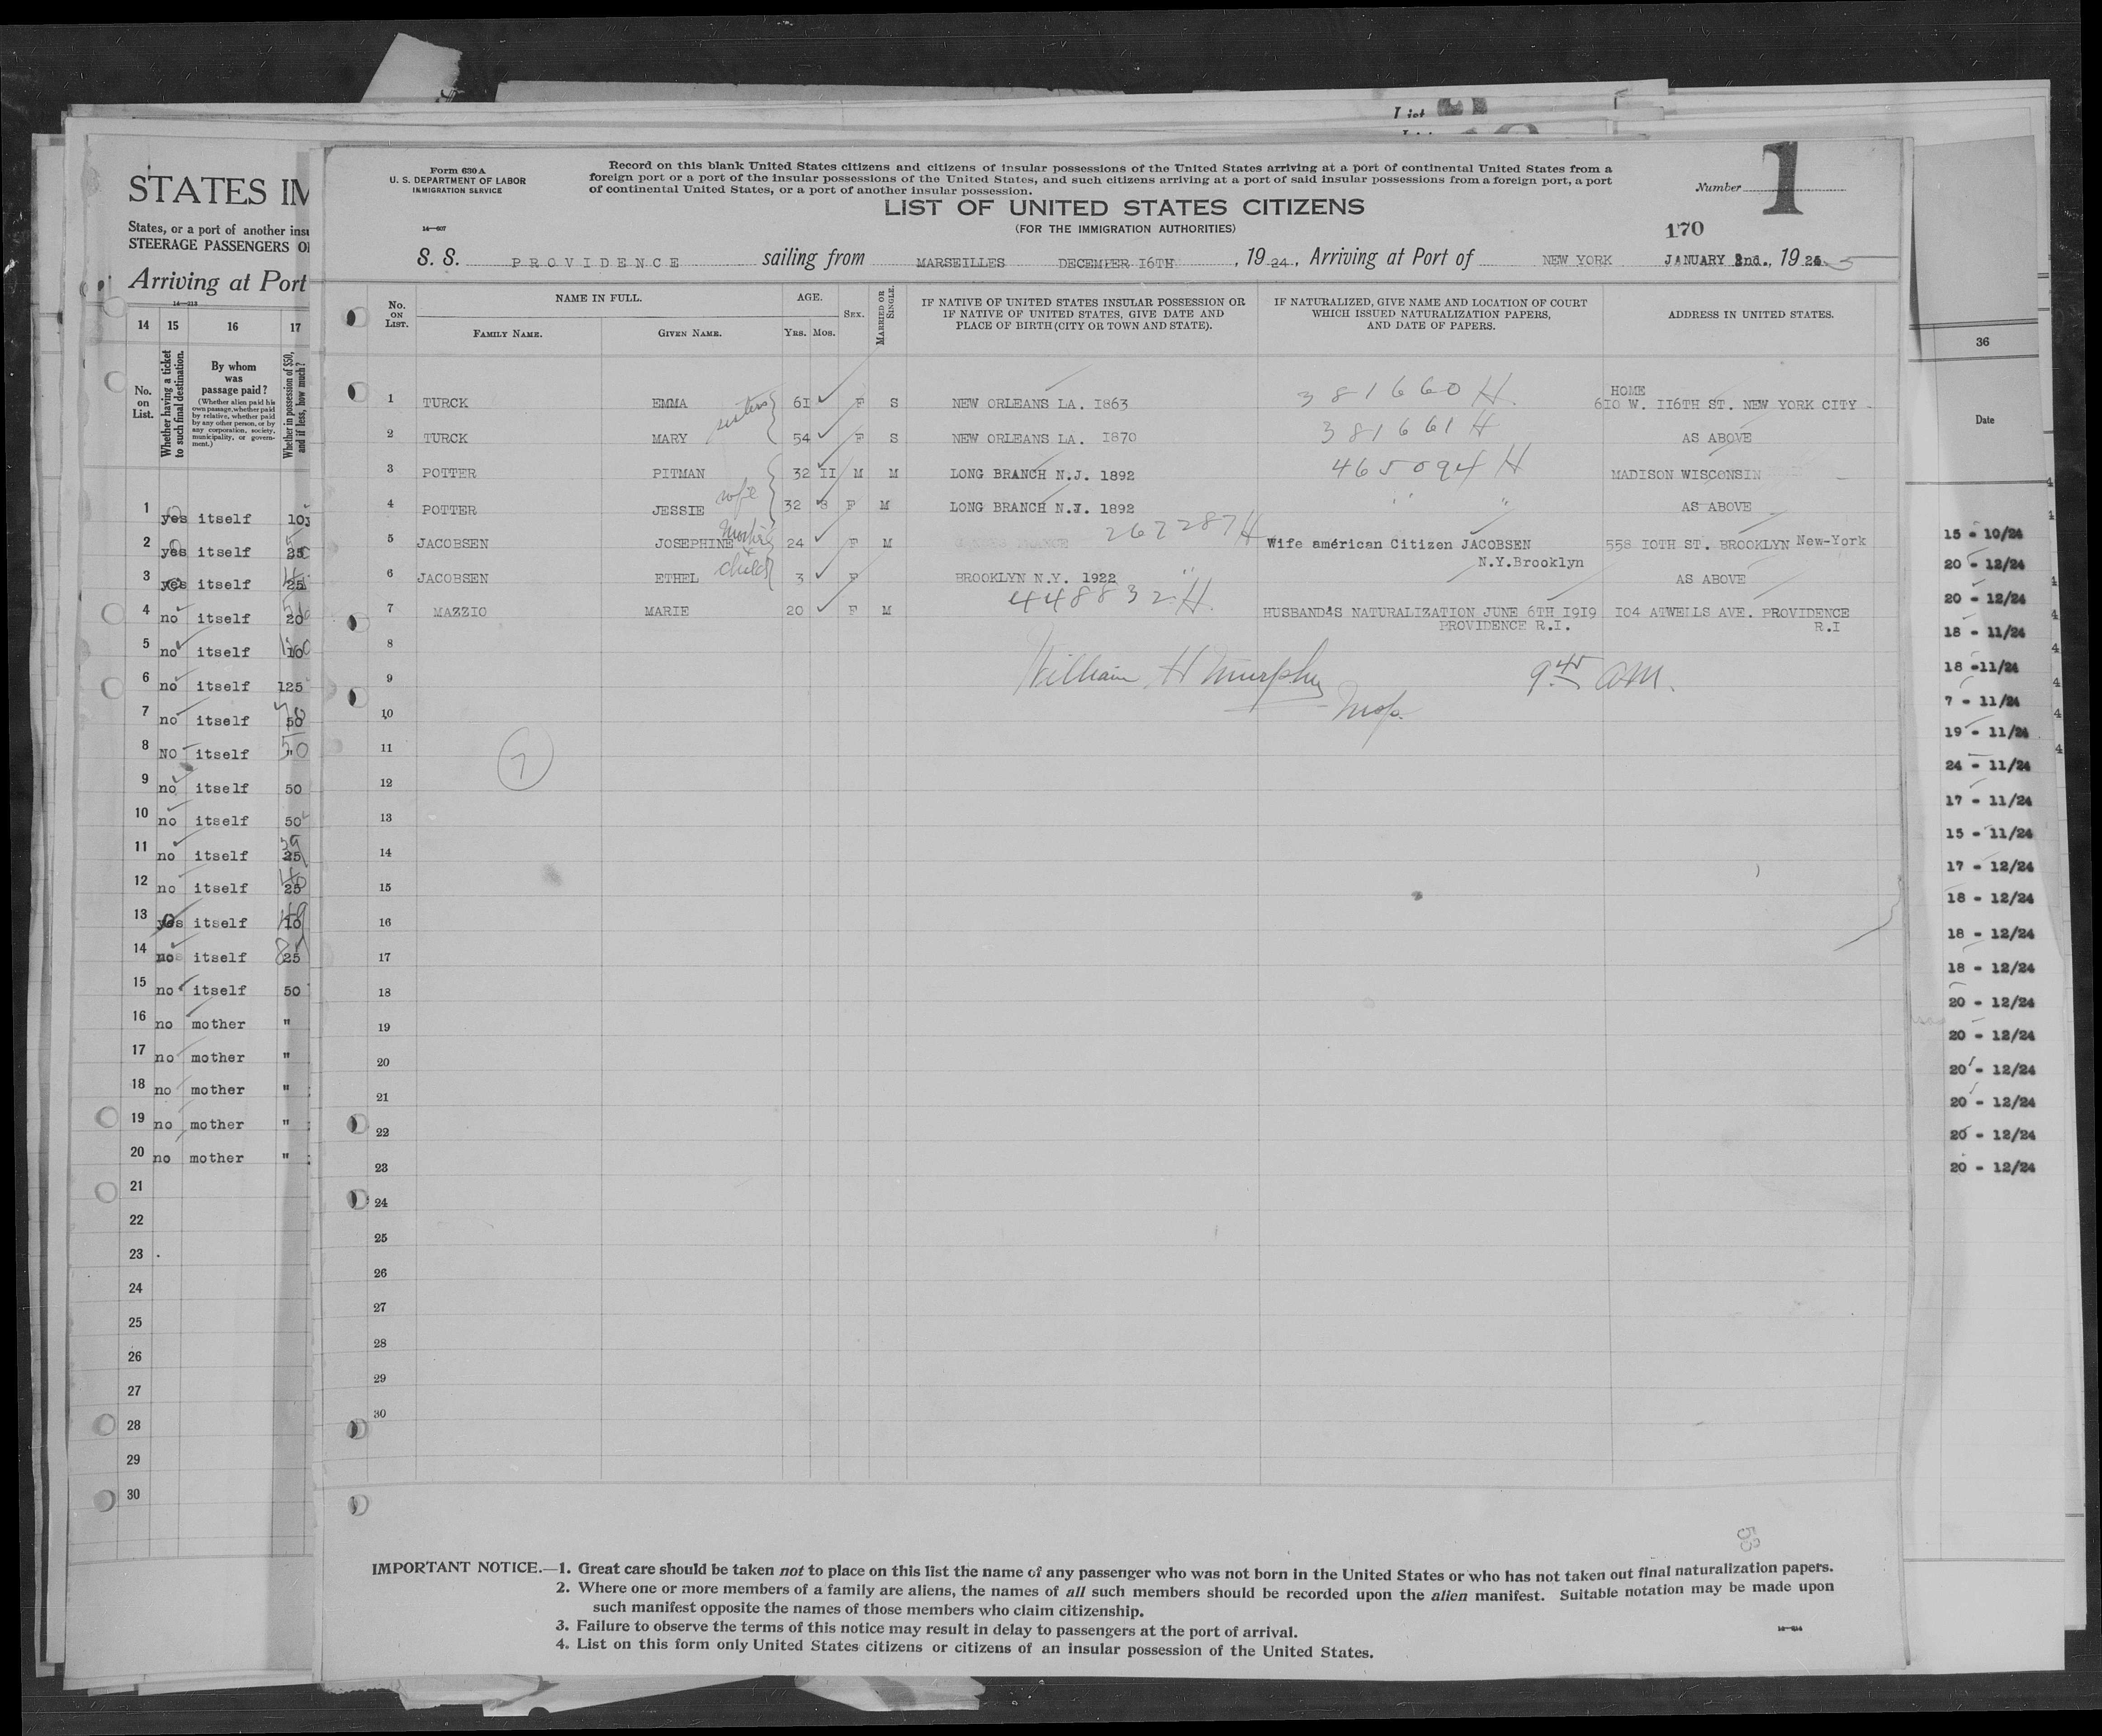 I ist
STATES IM
States, or a port of another insu
STEERAGE PASSENGERS O
Arriving at Port
14—213
14 15 16 17
No. on List.
Whether having a ticket to such final destination.
By whom was passage paid?
(Whether alien paid his own passage, whether paid by relative, whether paid by any other person, or by any corporation, society, municipality, or government.)
Whether in possession of $50, and if less, how much?
1 yes itself 10
2 yes itself 25
3 yes itself 25
4 no itself 20
5 no itself 10
6 no itself 125
7 no itself 50
8 NO itself " 50
9 no itself 50
10 no itself 50
11 no itself 25
12 no itself 25
13 yes itself 10
14 no itself 25
15 no itself 50
16 no mother "
17 no mother "
18 no mother "
19 no mother "
20 no mother "
21
22
23
24
25
26
27
28
29
30
Form 630 A
U. S. DEPARTMENT OF LABOR
IMMIGRATION SERVICE
14—607
Record on this blank United States citizens and citizens of insular possessions of the United States arriving at a port of continental United States from a
foreign port or a port of the insular possessions of the United States, and such citizens arriving at a port of said insular possessions from a foreign port, a port
of continental United States, or a port of another insular possession.
Number 1
LIST OF UNITED STATES CITIZENS
(FOR THE IMMIGRATION AUTHORITIES)
170
S. S. PROVIDENCE sailing from MARSEILLES DECEMBER I6TH, 1924, Arriving at Port of NEW YORK JANUARY 2nd., 1925
No. ON LIST.
NAME IN FULL.
FAMILY NAME. GIVEN NAME.
AGE.
YRS. MOS.
SEX.
MARRIED OR SINGLE.
IF NATIVE OF UNITED STATES INSULAR POSSESSION OR
IF NATIVE OF UNITED STATES, GIVE DATE AND
PLACE OF BIRTH (CITY OR TOWN AND STATE).
IF NATURALIZED, GIVE NAME AND LOCATION OF COURT
WHICH ISSUED NATURALIZATION PAPERS,
AND DATE OF PAPERS.
ADDRESS IN UNITED STATES.
HOME
1 TURCK EMMA sisters 6I F S NEW ORLEANS LA. I863 381660 H. 6I0 W. II6TH ST. NEW YORK CITY
2 TURCK MARY 54 F S NEW ORLEANS LA. I870 381661 H AS ABOVE
3 POTTER PITMAN 32 II M M LONG BRANCH N.J. 1892 465094 H MADISON WISCONSIN
4 POTTER JESSIE wife 32 8 F M LONG BRANCH N.J. 1892 " " AS ABOVE
5 JACOBSEN JOSEPHINE mother & 24 F M FRANCE 267287 H Wife américan Citizen JACOBSEN 558 IOTH ST. BROOKLYN New-York
N.Y.Brooklyn
6 JACOBSEN ETHEL child 3 F BROOKLYN N.Y. 1922 " AS ABOVE
7 MAZZIO MARIE 20 F M 448832 H. HUSBAND4S NATURALIZATION JUNE 6TH I919 I04 ATWELLS AVE. PROVIDENCE
PROVIDENCE R.I. R.I
8
9 William H Murphy 9 45 am.
10 Insp.
11
7
12
13
14
15
16
17
18
19
20
21
22
23
24
25
26
27
28
29
30
53
IMPORTANT NOTICE.—1. Great care should be taken not to place on this list the name of any passenger who was not born in the United States or who has not taken out final naturalization papers.
2. Where one or more members of a family are aliens, the names of all such members should be recorded upon the alien manifest. Suitable notation may be made upon
such manifest opposite the names of those members who claim citizenship.
3. Failure to observe the terms of this notice may result in delay to passengers at the port of arrival.
4. List on this form only United States citizens or citizens of an insular possession of the United States.
14—214
36
Date
15 - 10/24
20 - 12/24
20 - 12/24
18 - 11/24
18 -11/24
7 - 11/24
19 - 11/24
24 - 11/24
17 - 11/24
15 - 11/24
17 - 12/24
18 - 12/24
18 - 12/24
18 - 12/24
20 - 12/24
20 - 12/24
20 - 12/24
20 - 12/24
20 - 12/24
20 - 12/24